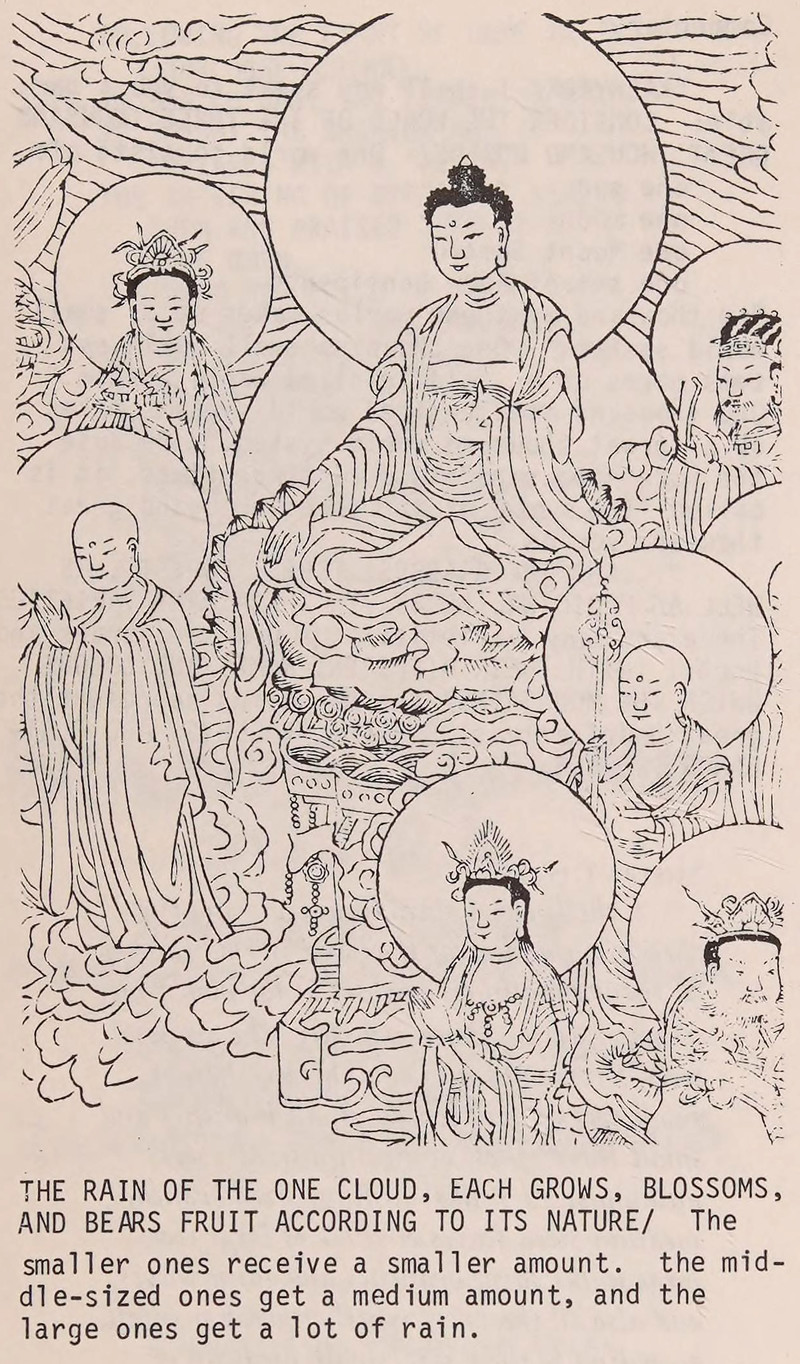 THE RAIN OF THE ONE CLOUD, EACH GROWS, BLOSSOMS,
AND BEARS FRUIT ACCORDING TO ITS NATURE/ The
smaller ones receive a smaller amount. the mid-
dle-sized ones get a medium amount, and the
large ones get a lot of rain.